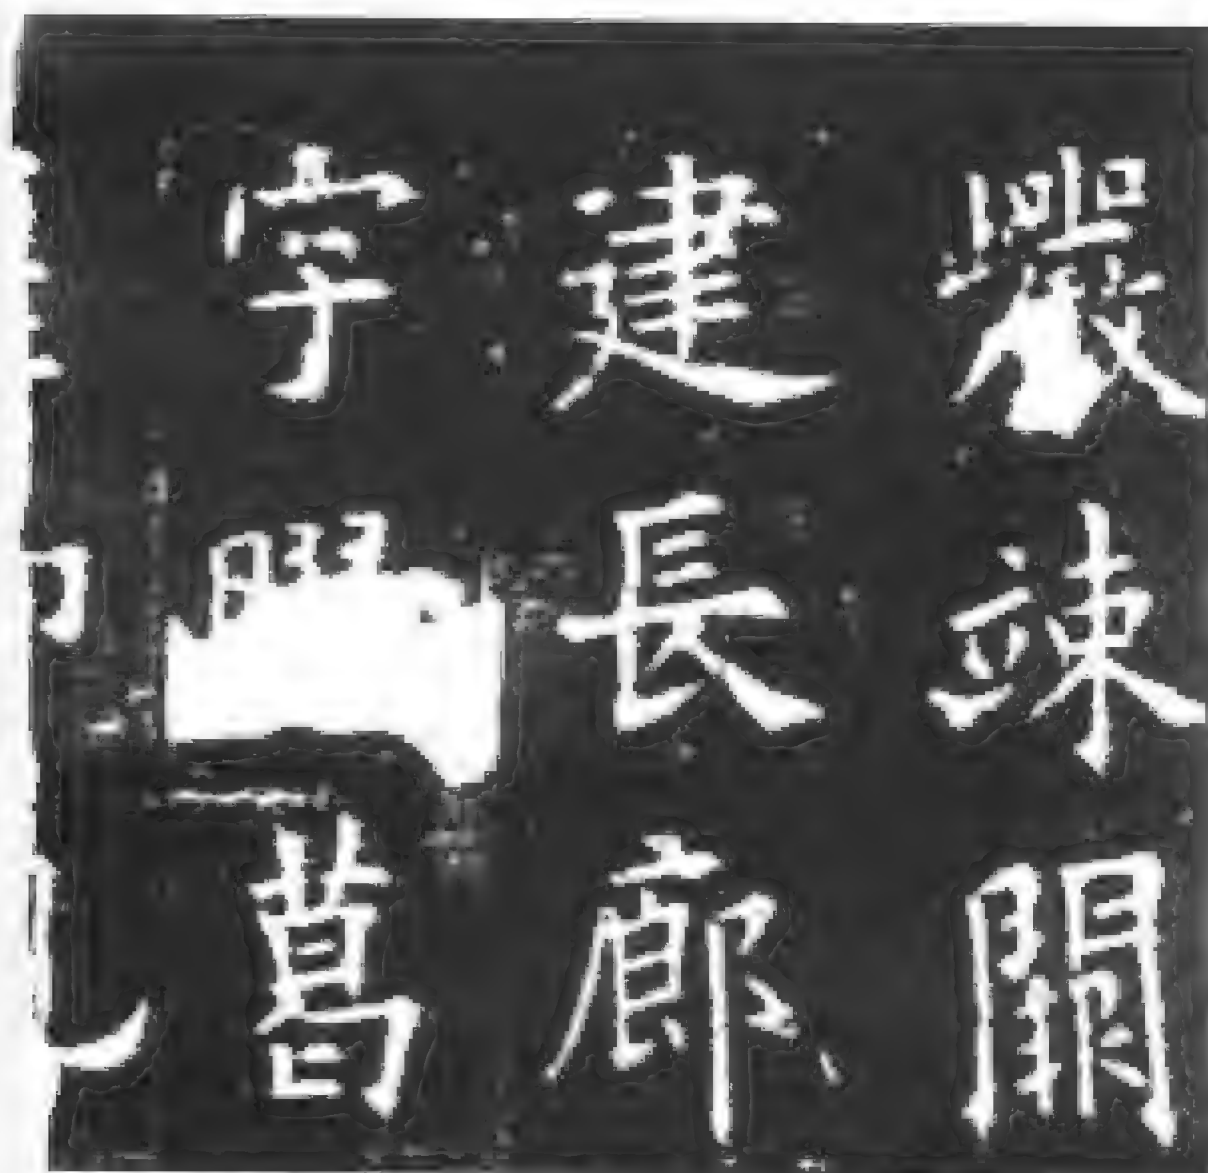 巖竦闕
建長廊
宇葛